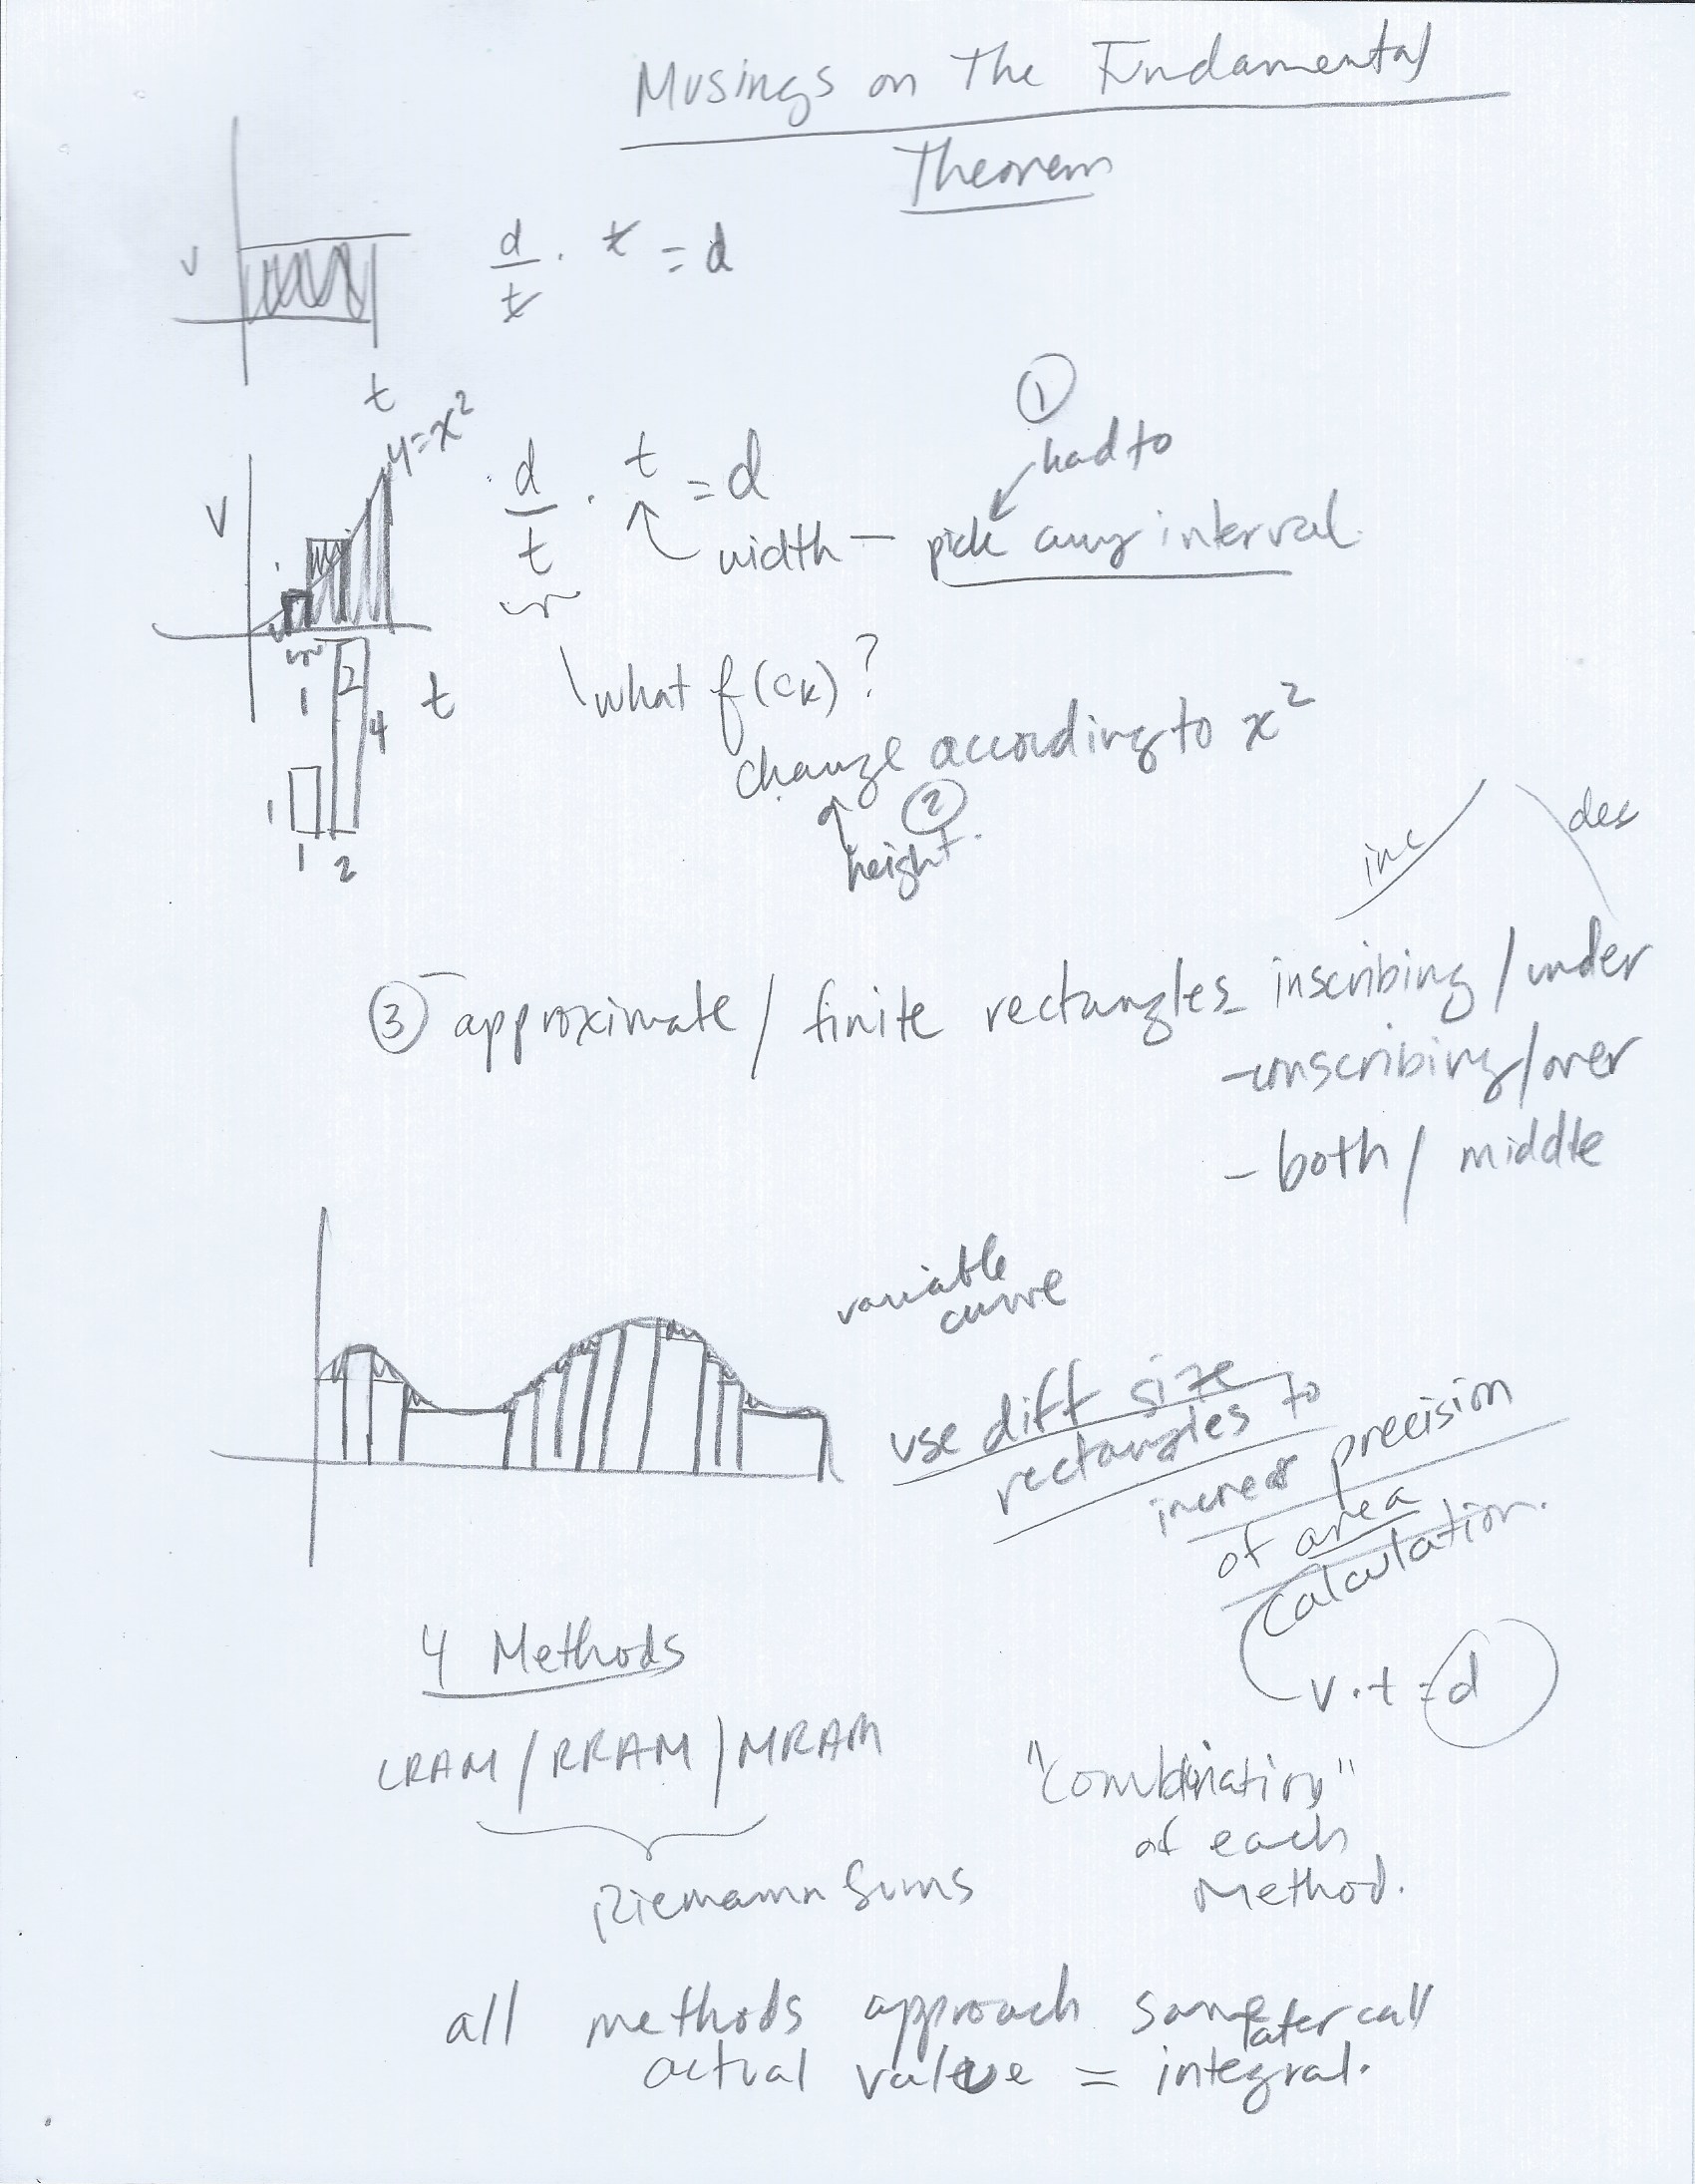 Musings on The Fundamental
Theorem
v
d/t · t = d
t
y=x²
v
d/t · t = d
①
had to
width — pick any interval.
1
2
t
4
what f(ck)?
change according to x²
②
height.
1
1
2
inc
dec
③ approximate / finite rectangles - inscribing / under
-conscribing/over
- both / middle
variable
curve
use diff size
rectangles to
increas precision
of area
calculation.
v·t=d
4 Methods
LRAM / RRAM / MRAM
Riemann Sums
"Combination"
of each
Method.
all methods approach same
later call
actual value = integral.